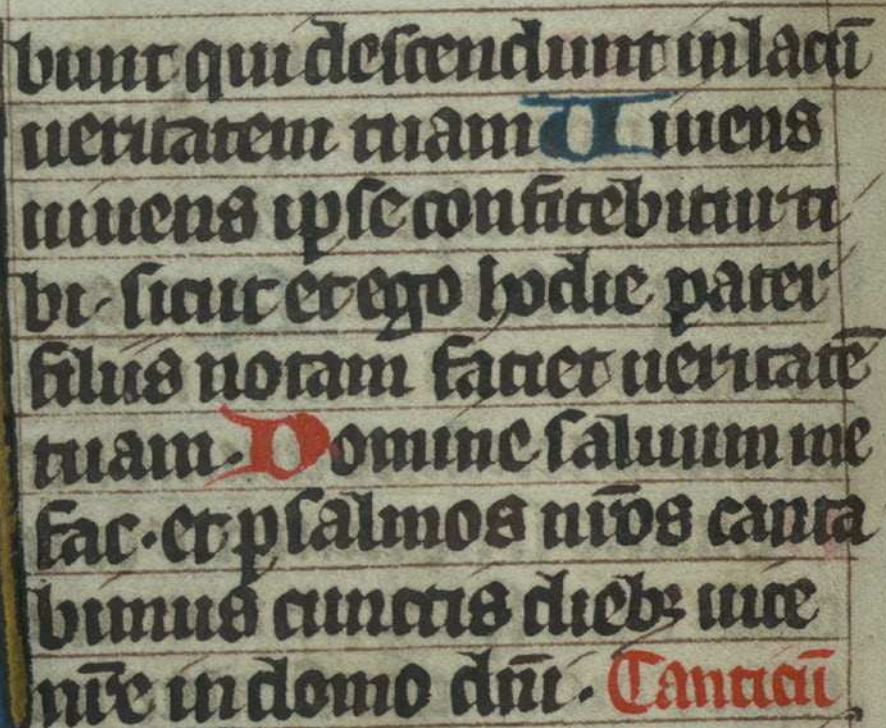 bunt qui descendunt in lacū
ueritatem tuam Uiuens
uiuens ipse confitebitur ti
bi· sicut et ego hodie pater
filiis notam faciet ueritatē
tuam· Domine saluum me
fac· et psalmos nr̄os canta
bimus cunctis diebꝫ uite
nr̄e in domo dn̄i· Canticū